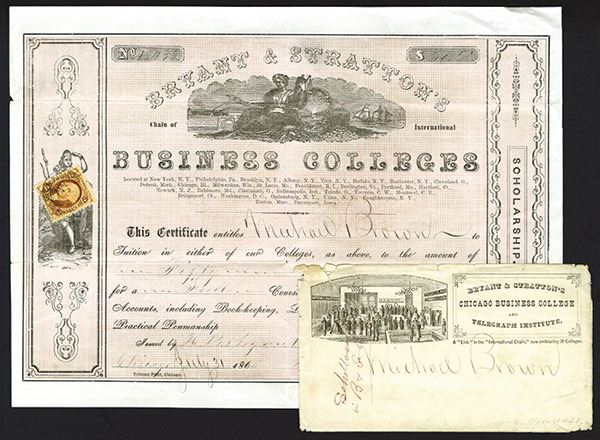 No
$
BRYANT & STRATTON'S
Chain of International
BUSINESS COLLEGES
Located at New York, N. Y., Philadelphia, Pa., Brooklyn, N. Y., Albany, N. Y., Troy, N. Y., Buffalo, N. Y., Rochester, N. Y., Cleveland, O.,
Detroit, Mich., Chicago, Ill., Milwaukee, Wis., St. Louis, Mo., Providence, R. I., Burlington, Vt., Portland, Me., Hartford, Ct.,
Newark, N. J., Baltimore, Md., Cincinnati, O., Indianapolis, Ind., Toledo, O., Toronto, C. W., Montreal, C. E.,
Bridgeport, Ct., Washington, D. C., Ogdensburg, N. Y., Utica, N. Y., Poughkeepsie, N. Y.,
Boston, Mass., Davenport, Iowa.
This Certificate entitles Michael Brown to
Tuition in either of our Colleges, as above, to the amount of
for a Course
Accounts, including Book-keeping,
Practical Penmanship
Issued by
July 31 186
Tribune Print, Chicago.
SCHOLARSHIP
BRYANT & STRATTON'S
CHICAGO BUSINESS COLLEGE
AND
TELEGRAPH INSTITUTE,
A "Link" in the "International Chain," now embracing 28 Colleges.
Michael Brown